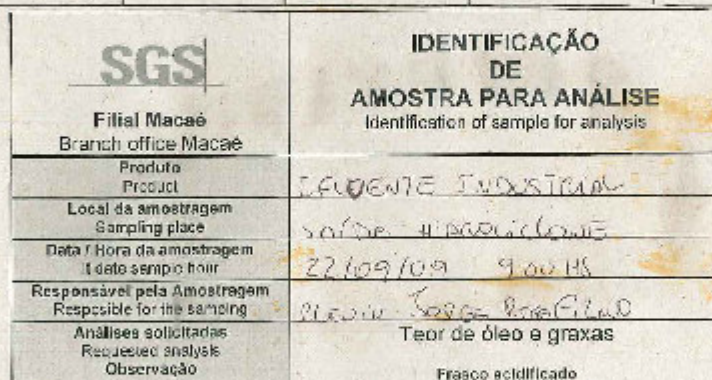 SGS
Filial Macaé
Branch office Macaé
IDENTIFICAÇÃO
DE
AMOSTRA PARA ANÁLISE
Identification of sample for analysis
Produto
Product
EFLUENTE INDUSTRIAL
Local da amostragem
Sampling place
SAÍDA HIDROCICLONE
Data / Hora da amostragem
date sample hour
22/09/09 9:00 HS
Responsável pela Amostragem
Respcsible for the sampling
JORGE
Análises solicitadas
Requested analysis
Teor de óleo e graxas
Observação
Frasco acidificado